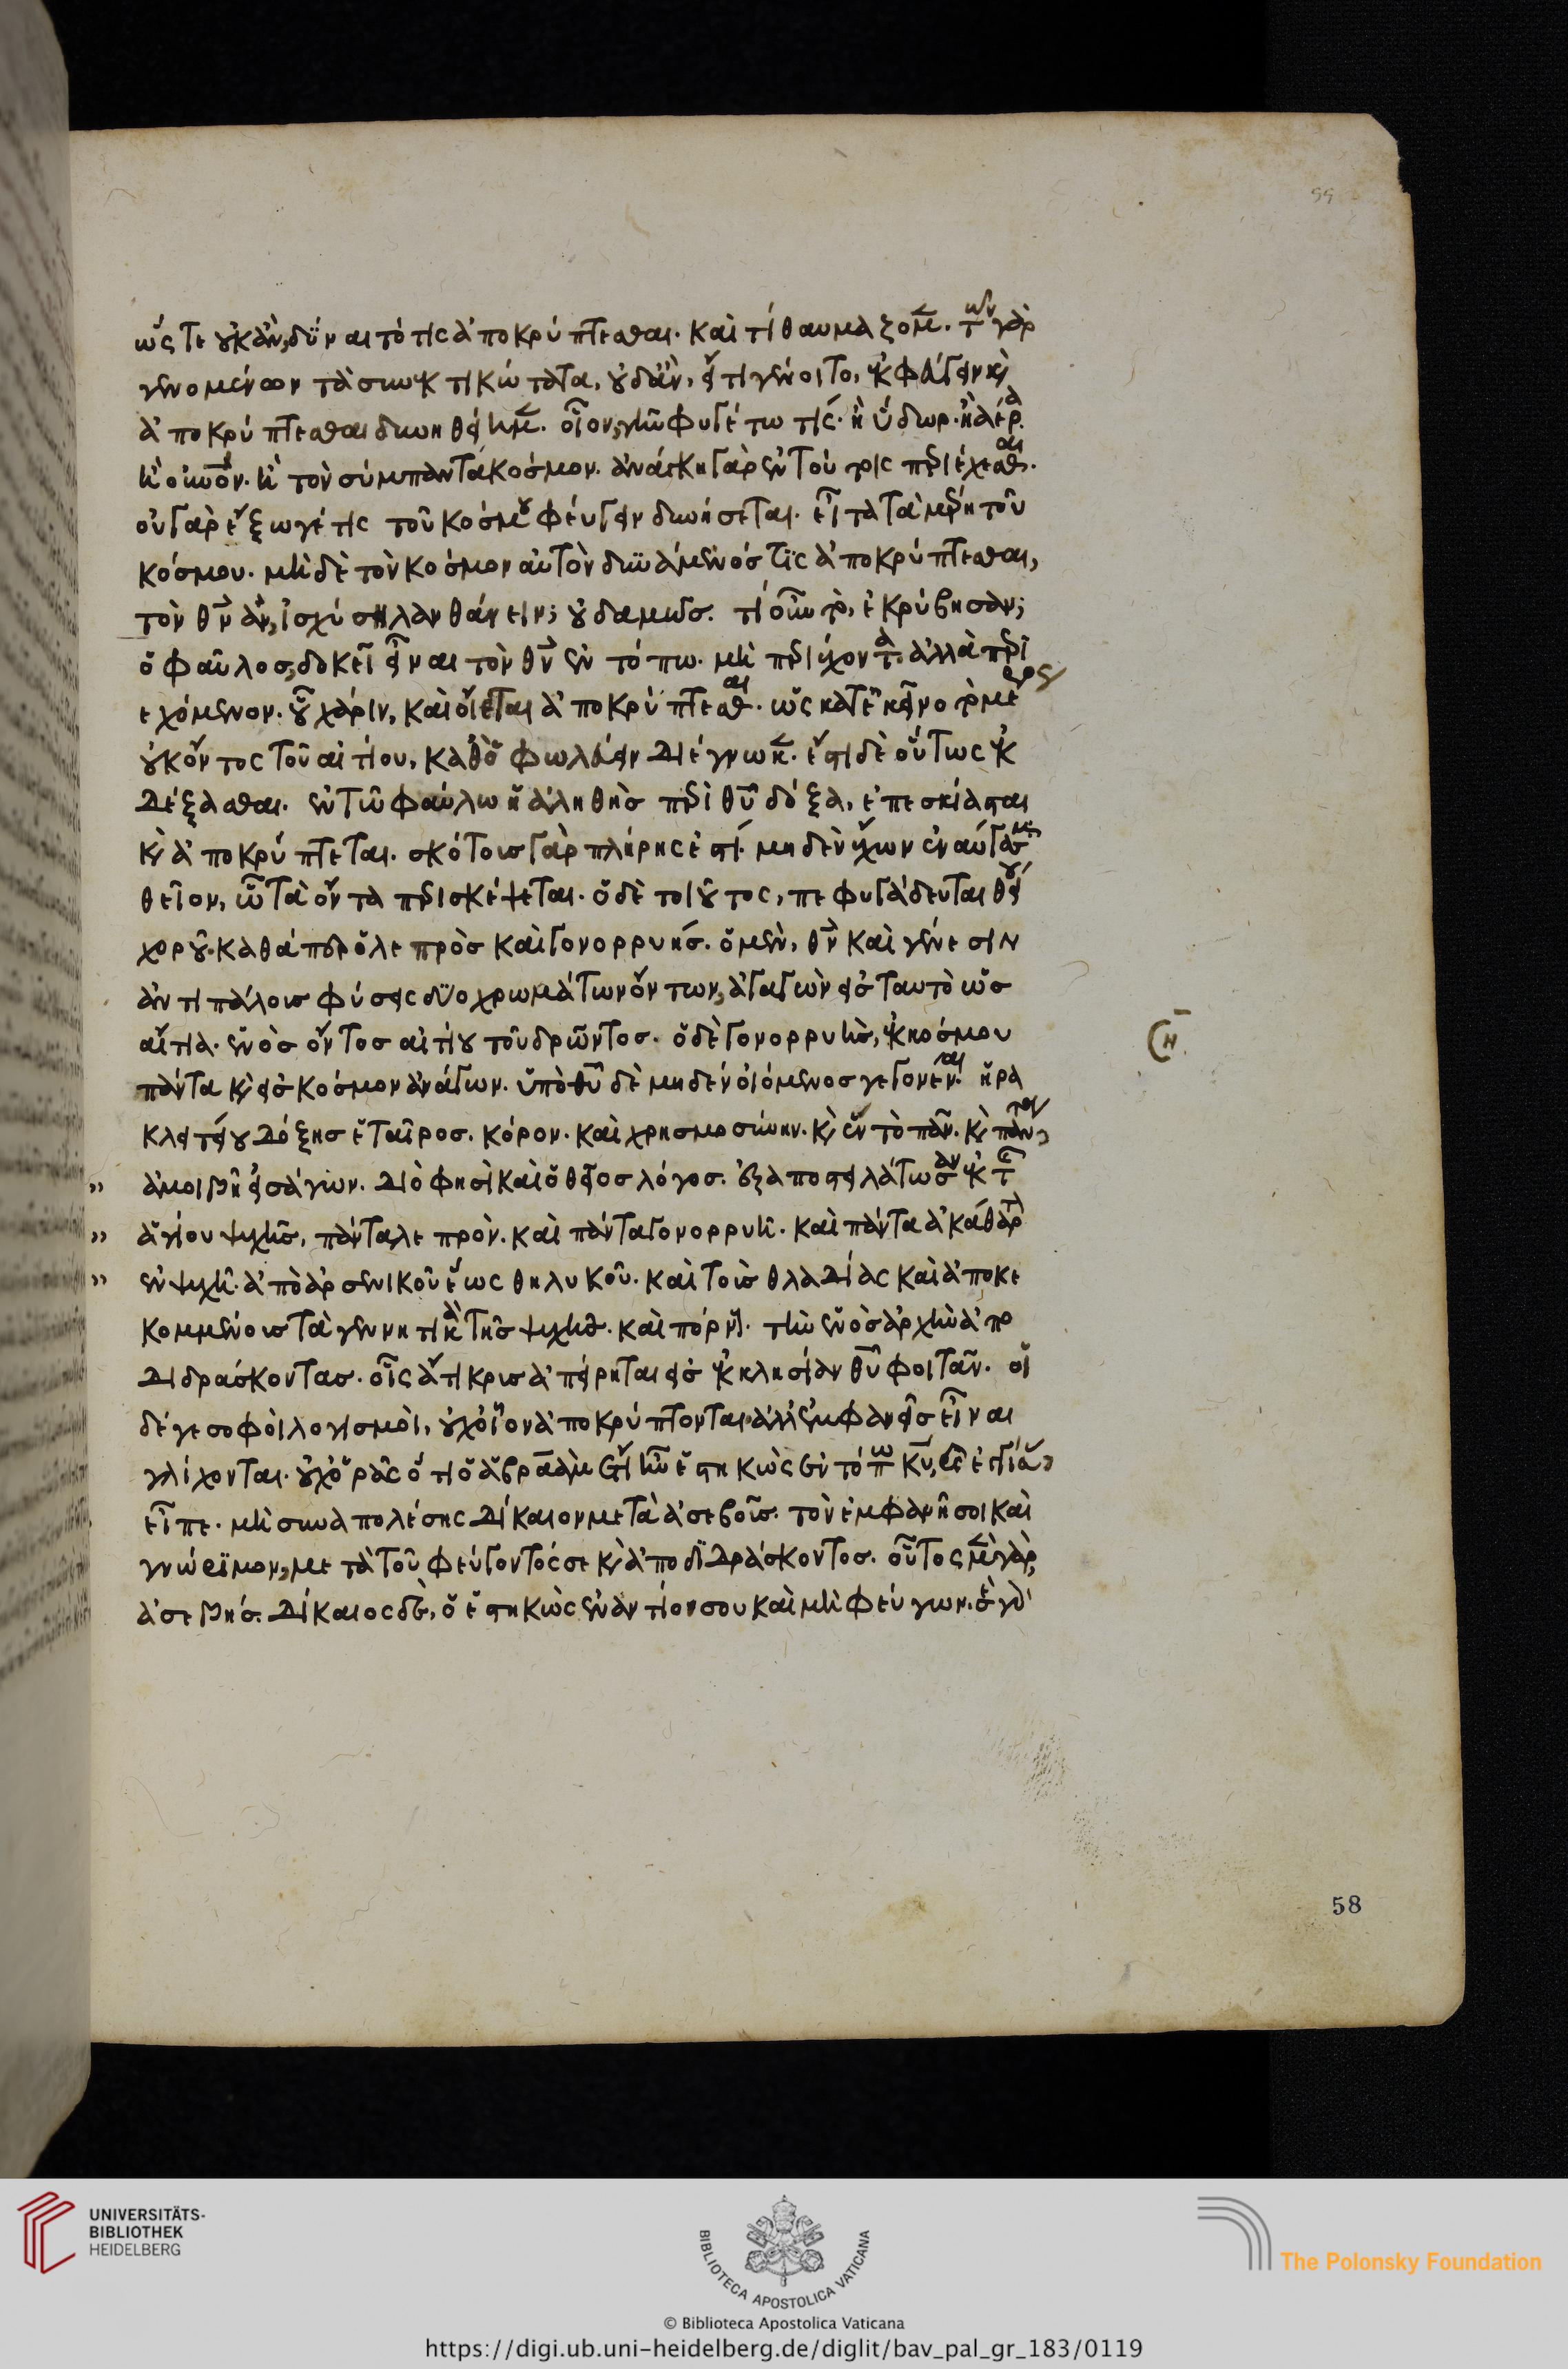 ὥστε οὐκ ἂν, δύναιτό τις ἀποκρύπτεσθαι. καὶ τί θαυμάζομ̅. τῶν γὰρ
γενομένων τὰ συνεκτικώτατα, οὐδ' ἂν, εἴ τι γένοιτο, ἐκφυγεῖν κ̀
ἀποκρύπτεσθαι δυνηθείημ̅. οἷον, γῆν φυγέτω τίς. ἢ ὕδωρ. ἢ ἀέρα.
ἢ οὐνόν. ἢ τὸν σύμπαντα κόσμον. ἀνάγκη γὰρ ἐν τούτοις περιέχεσθαι.
οὐ γὰρ ἔξω γέ τις τοῦ κόσμου φεύγειν δυνήσεται. εἶτα τὰ μέρη τοῦ
κόσμου. μὴ δὲ τὸν κόσμον αὐτὸν δυνάμενός τις ἀποκρύπτεσθαι,
τὸν θ̅ν̅ ἂν, ἰσχύσῃ λανθάνειν; οὐδαμῶς. τί οὖν τὸ, ἐκρύβησαν;
ὁ φαῦλος, δοκεῖ εἶναι τὸν θ̅ν̅ ἐν τόπω. μὴ περιέχοντα. ἀλλὰ περι
εχόμενον. οὗ χάριν, καὶ οἴεται ἀποκρύπτεσθαι. ὡς κατ' ἐκεῖνο τὸ μέρος
οὐκ ὄντος τοῦ αἰτίου, καθ' ὃ φωλεύειν διέγνωκ̅. ἔστι δὲ οὕτως ἐκ
δέξασθαι. ἐν τῶ φαύλω ἡ ἀληθὴς περὶ θ̅υ̅ δόξα, ἐπεσκίασται
κ̀ ἀποκρύπτεται. σκότους γὰρ πλήρης ἐστί. μηδὲν ἔχων ἐναύγασμα
θεῖον, ὧ τὰ ὄντα περισκέψεται. ὁ δὲ τοιοῦτος, πεφυγάδευται θείου
χοροῦ. καθάπερ ὁ λεπρὸς καὶ γονορρυής. ὁ μὲν, θ̅ν̅ καὶ γένεσιν
ἀντιπάλους φύσεις δύο χρωμάτων ὄντων, ἀγαγὼν εἰς ταυτὸ ὡς
αἴτια. ἑνὸς ὄντος αἰτίου τοῦ δρῶντος. ὁ δὲ γονορρυὴς, ἐκ κόσμου
πάντα κ̀ εἰς κόσμον ἀνάγων. ὑπὸ θ̅υ̅ δὲ μηδὲν οἰόμενος γεγονέναι. ἡρα
κλειτείου δόξης ἑταῖρος. κόρον. καὶ χρησμοσύνην. κ̀ ἓν τὸ πᾶν. κ̀ πάντα
ἀμοιβῆ εἰσάγων. διό φησι καὶ ὁ θεῖος λόγος. ἐξαποστειλάτωσαν ἐκ τῆς
ἁγίου ψυχῆς, πάντα λεπρὸν. καὶ πάντα γονορρυῆ. καὶ πάντα ἀκάθαρτον
ἐν ψυχῆ. ἀπὸ ἀρσενικοῦ ἕως θηλυκοῦ. καὶ τοὺς θλαδίας καὶ ἀποκε
κομμένους τὰ γεννητικὰ τῆς ψυχῆς. καὶ πόρνους. τὴν ἑνὸς ἀρχὴν ἀπο
διδράσκοντας. οἷς ἄντικρυς ἀπείρηται εἰς ἐκκλησίαν θ̅υ̅ φοιτᾶν. οἱ
δέ γε σοφοὶ λογισμοὶ, οὐχ οἷον ἀποκρύπτονται. ἀλλ' ἐμφανεῖς εἶναι
γλίχονται. οὐχ ὁρᾶς ὅτι ὁ ἀβραὰμ ἔτι ἦν ἑστηκὼς ἐν τόπω κ̅υ̅, κ̀ ἐγγίσας
εἶπε. μὴ συναπολέσης δίκαιον μετὰ ἀσεβοῦς. τὸν ἐμφανῆ σοι καὶ
γνώριμον, μετὰ τοῦ φεύγοντός σε κ̀ ἀποδιδράσκοντος. οὗτος μὲν γὰρ,
ἀσεβής. δίκαιος δὲ, ὁ ἑστηκὼς ἐναντίον σου καὶ μὴ φεύγων. σὲ γὰρ
ση̅
99
58
UNIVERSITÄTS-
BIBLIOTHEK
HEIDELBERG
BIBLIOTECA APOSTOLICA VATICANA
The Polonsky Foundation
© Biblioteca Apostolica Vaticana
https://digi.ub.uni-heidelberg.de/diglit/bav_pal_gr_183/0119